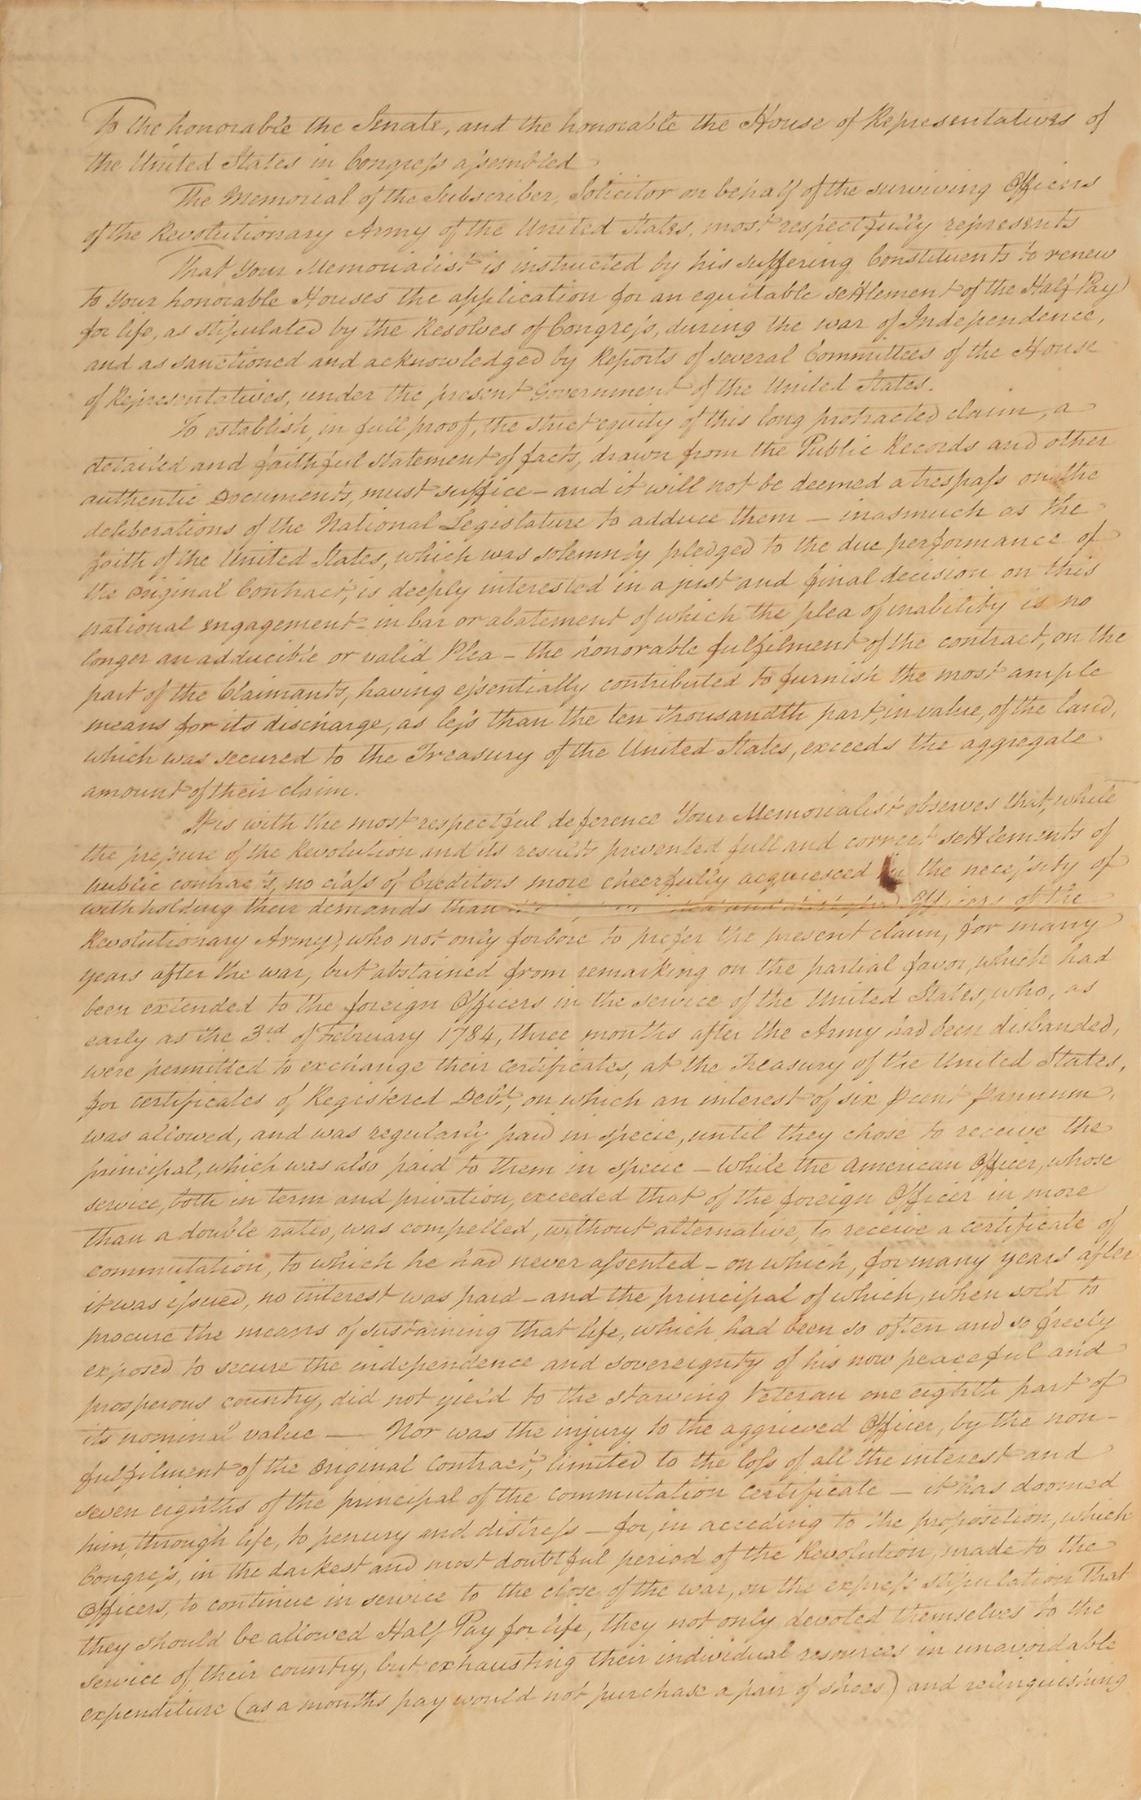 To the honorable the Senate, and the honorable the House of Representatives of
the United States in Congress assembled
The Memorial of the Subscriber, Solicitor on behalf of the surviving Officers
of the Revolutionary Army of the United States, most respectfully represents
That Your Memorialist is instructed by his suffering Constituents to renew
to Your honorable Houses the application for an equitable settlement of the Half Pay
for life, as stipulated by the Resolves of Congress, during the war of Independence,
and as sanctioned and acknowledged by Reports of several Committees of the House
of Representatives, under the present Government of the United States.
To establish, in full proof, the strict equity of this long protracted claim, a
detailed and faithful statement of facts, drawn from the Public Records and other
authentic Documents, must suffice – and it will not be deemed a trespass on the
deliberations of the National Legislature to adduce them – inasmuch as the
faith of the United States, which was solemnly pledged to the due performance of
the Original Contract, is deeply interested in a just and final decision on this
national engagement – in bar or abatement of which the plea of inability is no
longer an adducible or valid Plea – the honorable fulfilment of the contract, on the
part of the Claimants, having essentially contributed to furnish the most ample
means for its discharge, as less than the ten thousandth part, in value, of the land,
which was secured to the Treasury of the United States, exceeds the aggregate
amount of their claim.
It is with the most respectful deference Your Memorialist observes that, while
the pressure of the Revolution and its results prevented full and correct settlements of
public contracts, no class of Creditors more cheerfully acquiesced in the necessity of
withholding their demands than Officers of the
Revolutionary Army, who not only forbore to prefer the present claim, for many
years after the war, but abstained from remarking on the partial favor, which had
been extended to the foreign Officers in the service of the United States, who, as
early as the 3rd of February 1784, three months after the Army had been disbanded,
were permitted to exchange their certificates, at the Treasury of the United States,
for certificates of Registered Debt, on which an interest of six p cent p annum,
was allowed, and was regularly paid in specie, until they chose to receive the
principal, which was also paid to them in specie – While the American Officer, whose
service, both in term and privation, exceeded that of the foreign Officer in more
than a double ratio, was compelled, without alternative, to receive a certificate of
commutation, to which he had never assented – on which, for many years after
it was issued, no interest was paid – and the principal of which, when sold to
procure the means of sustaining that life, which had been so often and so freely
exposed to secure the independence and sovereignty of his now peaceful and
prosperous country, did not yield to the starving Veteran one eighth part of
its nominal value — Nor was the injury to the aggrieved Officer, by the non-
fulfilment of the Original Contract, limited to the loss of all the interest and
seven eighths of the principal of the commutation certificate – it has doomed
him, through life, to penury and distress – for, in acceding to the proposition, which
Congress, in the darkest and most doubtful period of the Revolution, made to the
Officers, to continue in service to the close of the war, on the express stipulation that
they should be allowed Half Pay for life, they not only devoted themselves to the
service of their country, but exhausting their individual resources in unavoidable
expenditure (as a months pay would not purchase a pair of shoes) and relinquishing